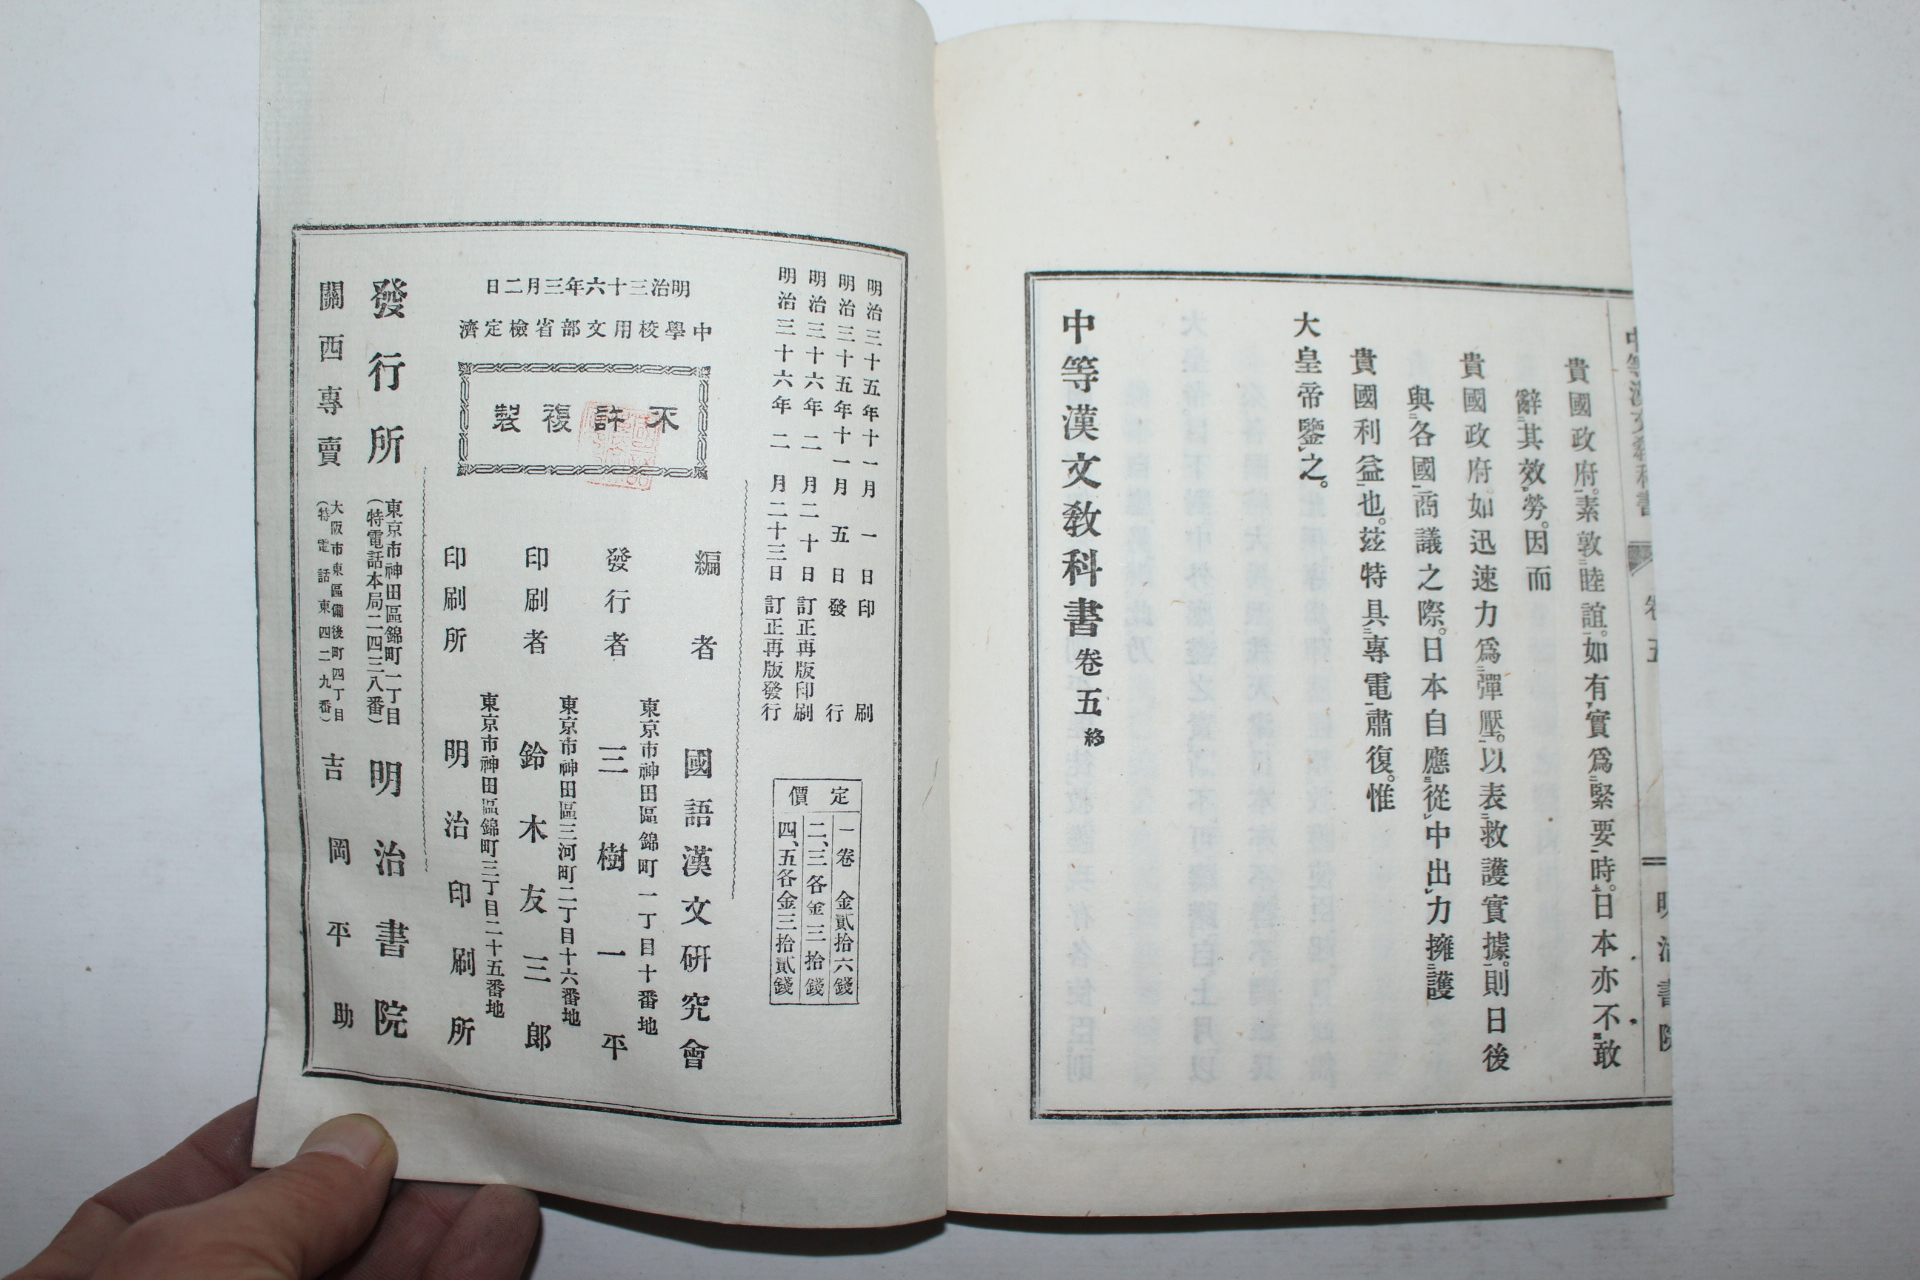 中等漢文教科書
卷五
明治書院
貴國政府。素敦睦誼。如有實爲緊要時。日本亦不敢
辭其效勞。因而
貴國政府。如迅速力爲彈壓。以表救護實據。則日後
與各國商議之際。日本自應從中出力擁護
貴國利益也。玆特具專電肅復。惟
大皇帝鑒之。
中等漢文敎科書卷五終
明治三十五年十一月一日印刷
明治三十五年十一月五日發行
明治三十六年二月二十日訂正再版印刷
明治三十六年二月二十三日訂正再版發行
定價
一卷 金貳拾六錢
二、三各金三拾錢
四、五各金三拾貳錢
明治三十六年三月二日
中學校用文部省檢定濟
不許複製
編者 國語漢文硏究會
東京市神田區錦町一丁目十番地
發行者 三樹一平
東京市神田區三河町二丁目十六番地
印刷者 鈴木友三郎
東京市神田區錦町三丁目二十五番地
印刷所 明治印刷所
發行所
東京市神田區錦町一丁目
(特電話本局二四三八番)
明治書院
關西專賣
大阪市東區備後町四丁目
(特電話東四二九番)
吉岡平助